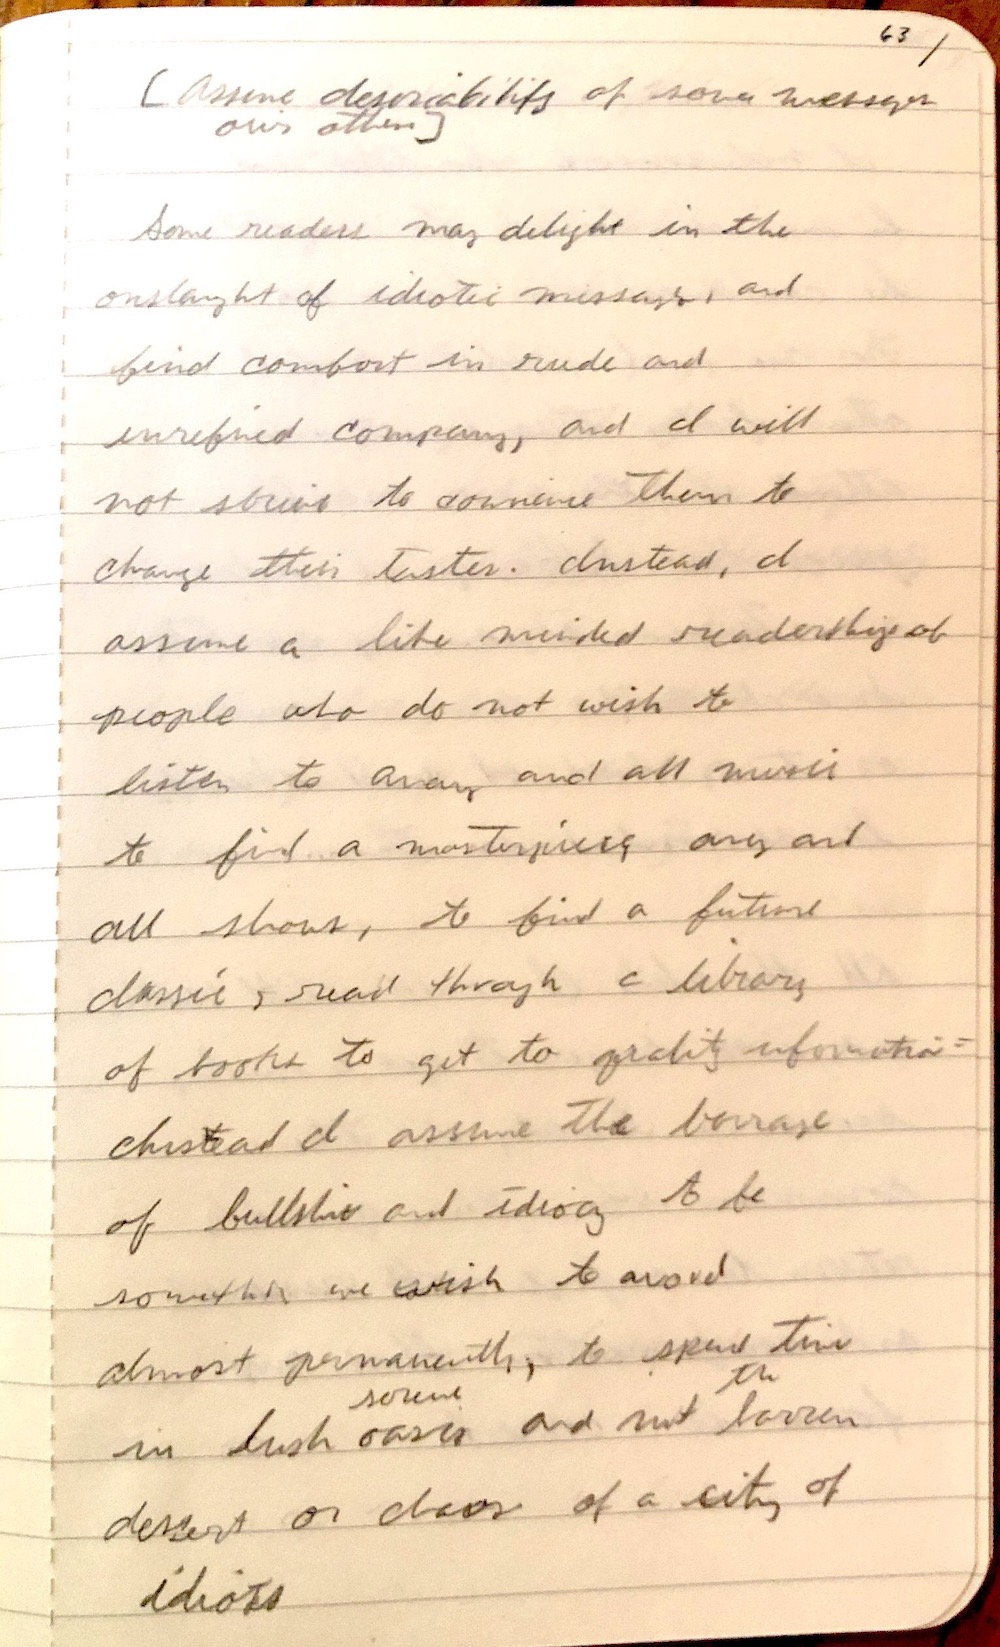 63 /
[Assume desirability of some messages
over others]
Some readers may delight in the
onslaught of idiotic messages, and
find comfort in rude and
unrefined company, and I will
not strive to convince them to
change their tastes. Instead, I
assume a like minded readership of
people who do not wish to
listen to any and all music
to find a masterpiece, any and
all shows, to find a future
classic, read through a library
of books to get to quality information.
Instead I assume the barrage
of bullshit and idiocy to be
something we wish to avoid
almost permanently, to spend time
serene the
in lush oasis and not barren
dessert or chaos of a city of
idiots